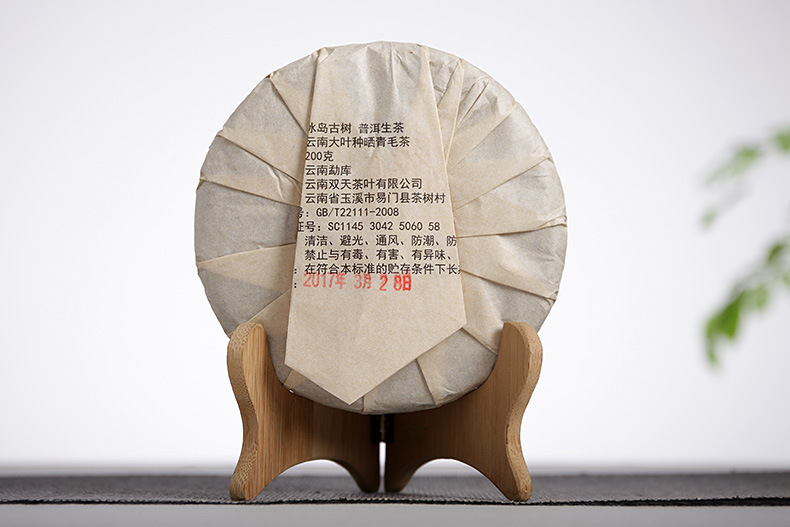 冰岛古树 普洱生茶
云南大叶种晒青毛茶
200克
云南勐库
云南双天茶叶有限公司
云南省玉溪市易门县茶树村
号：GB/T22111-2008
证号：SC1145 3042 5060 58
清洁、避光、通风、防潮、防
禁止与有毒、有害、有异味、
：在符合本标准的贮存条件下长
：2017年 3月 28日